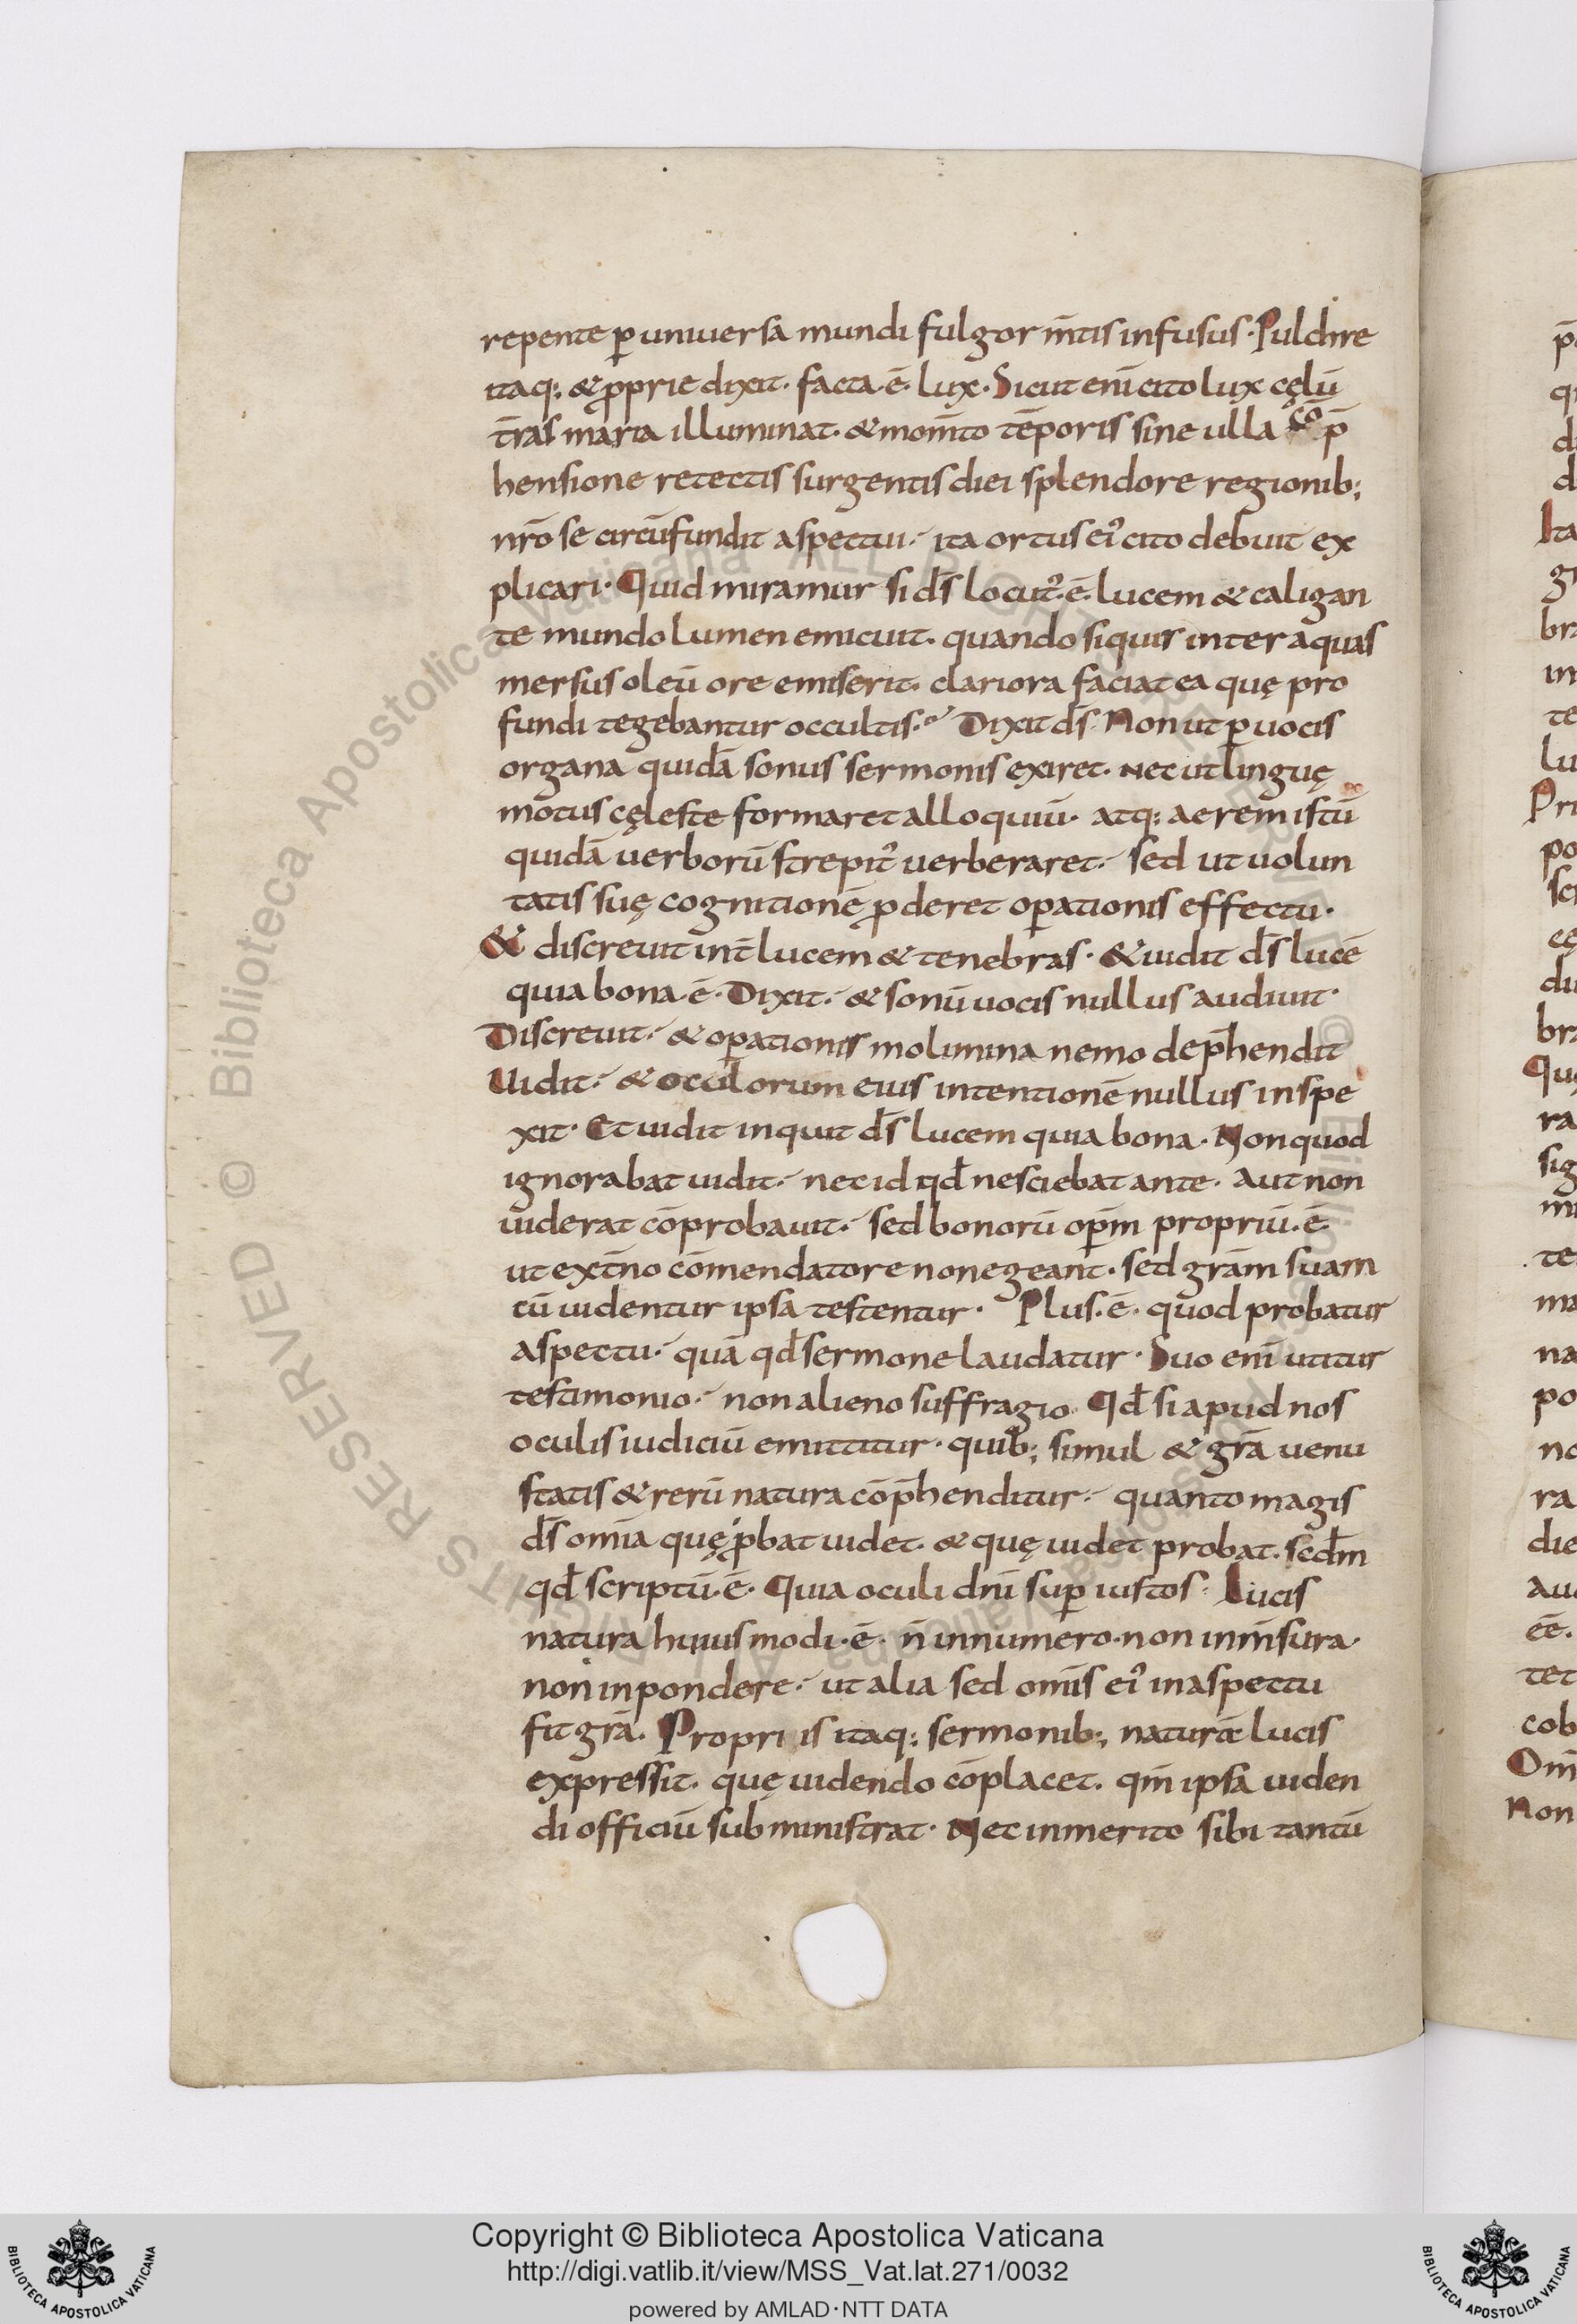 repente p̄ uniuersa mundi fulgor m̄tis infusus · Pulchre
itaq; & p̄prie dixit · facta · ē · lux · Sicut eni cito lux cęlū
t̄ras maria illuminat · & mom̄to tēporis sine ulla cō p̄
hensione retectis surgentis diei splendore regionib;
nr̄o se circūfundit aspectui · ita ortus ei᾽ cito debuit ex
plicari · Quid miramur si d̄s locut᾽ · ē · lucem & caligan
te mundo lumen emicuit · quando siquis inter aquas
mersus oleū ore emiserit · clariora faciat ea quę pro
fundi tegebantur occultis · Dixit d̄s · Non ut p̄ uocis
organa quidā sonus sermonis exiret · Nec ut linguę
motus cęleste formaret alloquiū · atq; aerem istū
quidā uerborū strepit᾽ uerberaret · sed ut uolun
tatis suę cognitionē p̄deret op̄ationis effectu ·
& discreuit int̄ lucem & tenebras · & uidit d̄s lucē
quia bona · ē · Dixit · & sonū uocis nullus audiuit ·
Discreuit · & op̄ationis molimina nemo dep̄hendit
Uidit · & oculorum eius intentionē nullus inspe
xit · Et uidit inquit d̄s lucem quia bona · Non quod
ignorabat uidit · nec id qd̄ nesciebat ante · aut non
uiderat cōprobauit · sed bonorū op̄m propriū · ē
ut ext̄no cōmendatore non egeant · sed grām suam
cū uidentur ipsa testentur · Plus · ē · quod probatur
aspectu · quā qd̄ sermone laudatur · Suo eni utitur
testimonio · non alieno suffragio · Qd̄ si apud nos
oculis iudiciū emittitur · quib; simul & grā uenu
statis & rerū natura cōp̄henditur · quanto magis
d̄s omīa quę p̄bat uidet · & quę uidet probat · sed̄m
qd̄ scriptū · ē · Quia oculi dn̄i sup̄ iustos · Lucis
natura huiusmodi · ē · n̄ in numero · non in m̄sura ·
non in pondere · ut alia sed om̄is ei᾽ in aspectu
fit grā · Propriis itaq; sermonib; naturā lucis
expressit · quę uidendo cōplacet · qm̄ ipsa uiden
di officiū subministrat · Nec inmerito sibi tantū
© Biblioteca Apostolica Vaticana ALL RIGHTS RESERVED
Copyright © Biblioteca Apostolica Vaticana
http://digi.vatlib.it/view/MSS_Vat.lat.271/0032
powered by AMLAD·NTT DATA
BIBLIOTECA APOSTOLICA VATICANA
BIBLIOTECA APOSTOLICA VATICANA